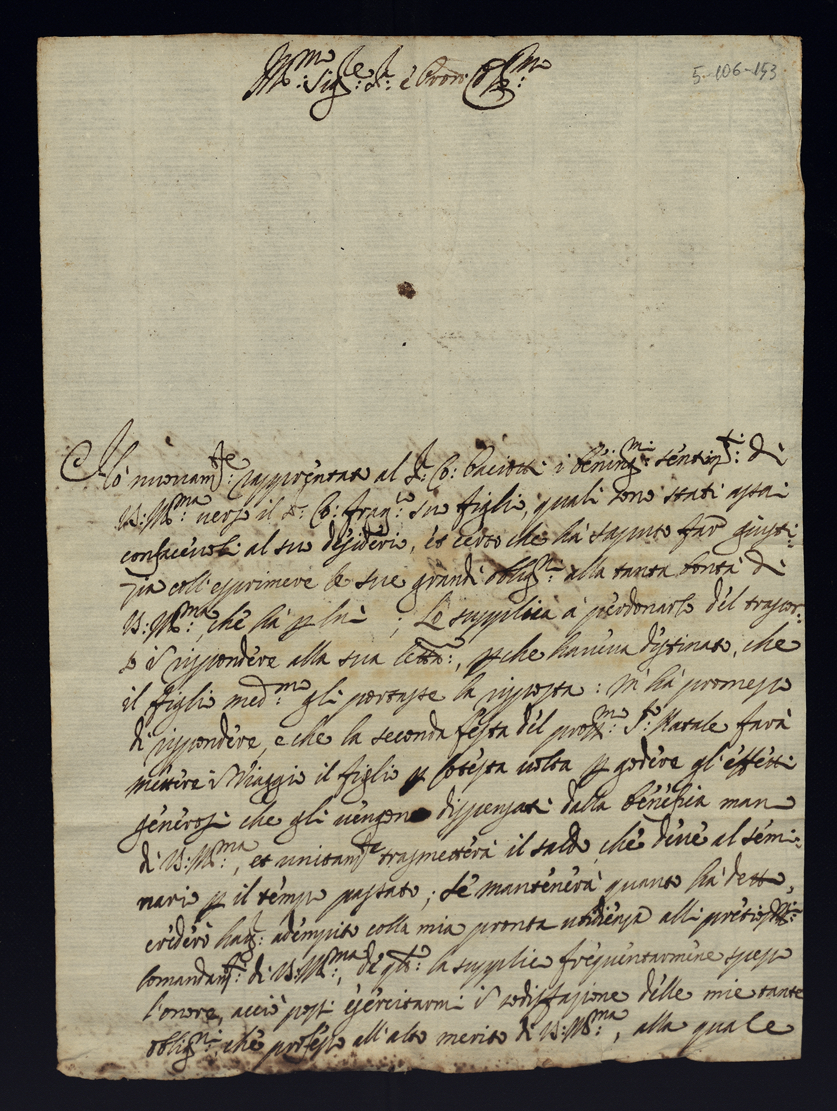 Ill:mo Sig:re S:r e Pron Col:mo
5-106-153
Hò nuovam:te rappręntato al S:r Co: Baciotti i bening:mi sentim:ti di
V:S:Ill:ma verso il S:r Co: frag:o suo figlio, quali sono stati assai
confacevoli al suo desiderio, et certo che hà saputo far giusti:
zia coll'esprimere le sue grandi oblig:ni alla tanta bontà di
V:S:Ill:ma, che hà p lui; Lo supplica à perdonarlo del traspor:
to in rispondere alla sua lett:a, p che haveva destinato, che
il figlio med:mo gli portasse la risposta: m'hà promesso
di rispondere, e che la seconda festa del pross:mo S:to Natale farà
mettere in Viaggio il figlio p cotesta volta p godere gl'effetti
generosi che gli vengono dispensati dalla benefica mano
di V:S:Ill:ma, et unitam:te trasmetterà il saldo, che deve al semi:
nario p il tempo passato; se mantenerà quanto hà detto,
crederò haver adempito colla mia pronta ubidienza alli pretiosi:mi
Comandam:ti di V:S:Ill:ma, de q:li la supplico frequentarmene spesso
l'onore, acciò possi esercitarmi in sodisfazione delle mie tante
oblig:ni, che professo all'alto merito di V:S:Ill:ma, alla quale